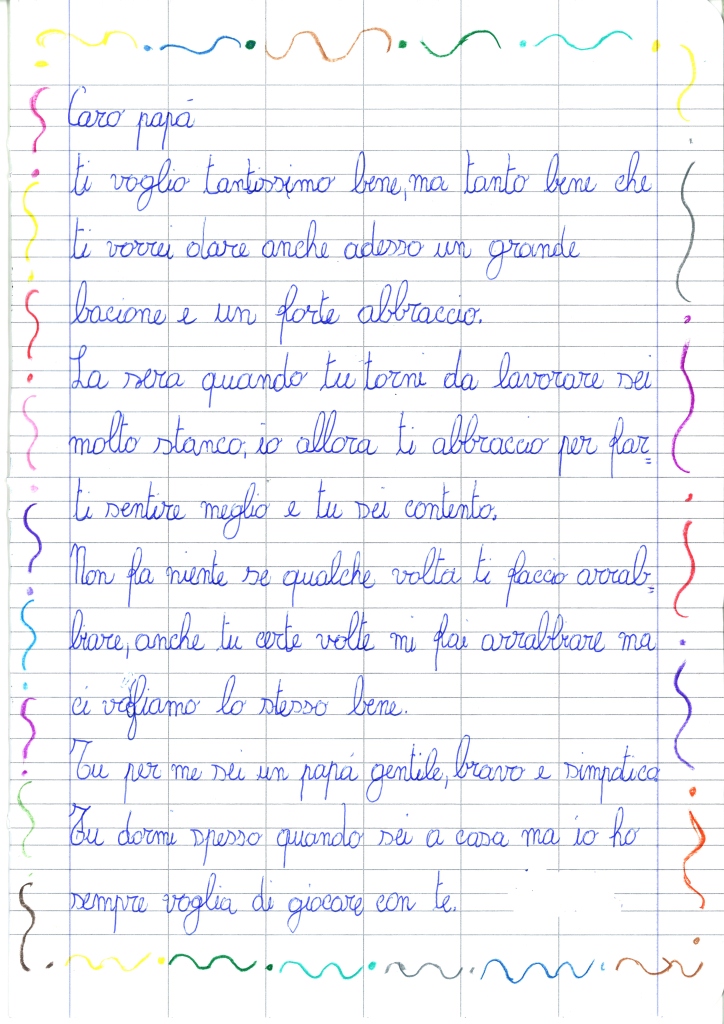 Caro papá
ti voglio tantissimo bene, ma tanto bene che
ti vorrei dare anche adesso un grande
bacione e un forte abbraccio.
La sera quando tu torni da lavorare sei
molto stanco, io allora ti abbraccio per far=
ti sentire meglio e tu sei contento.
Non fa niente se qualche volta ti faccio arrab=
biare, anche tu certe volte mi fai arrabbiare ma
ci vogliamo lo stesso bene.
Tu per me sei un papá gentile, bravo e simpatico
Tu dormi spesso quando sei a casa ma io ho
sempre voglia di giocare con te.